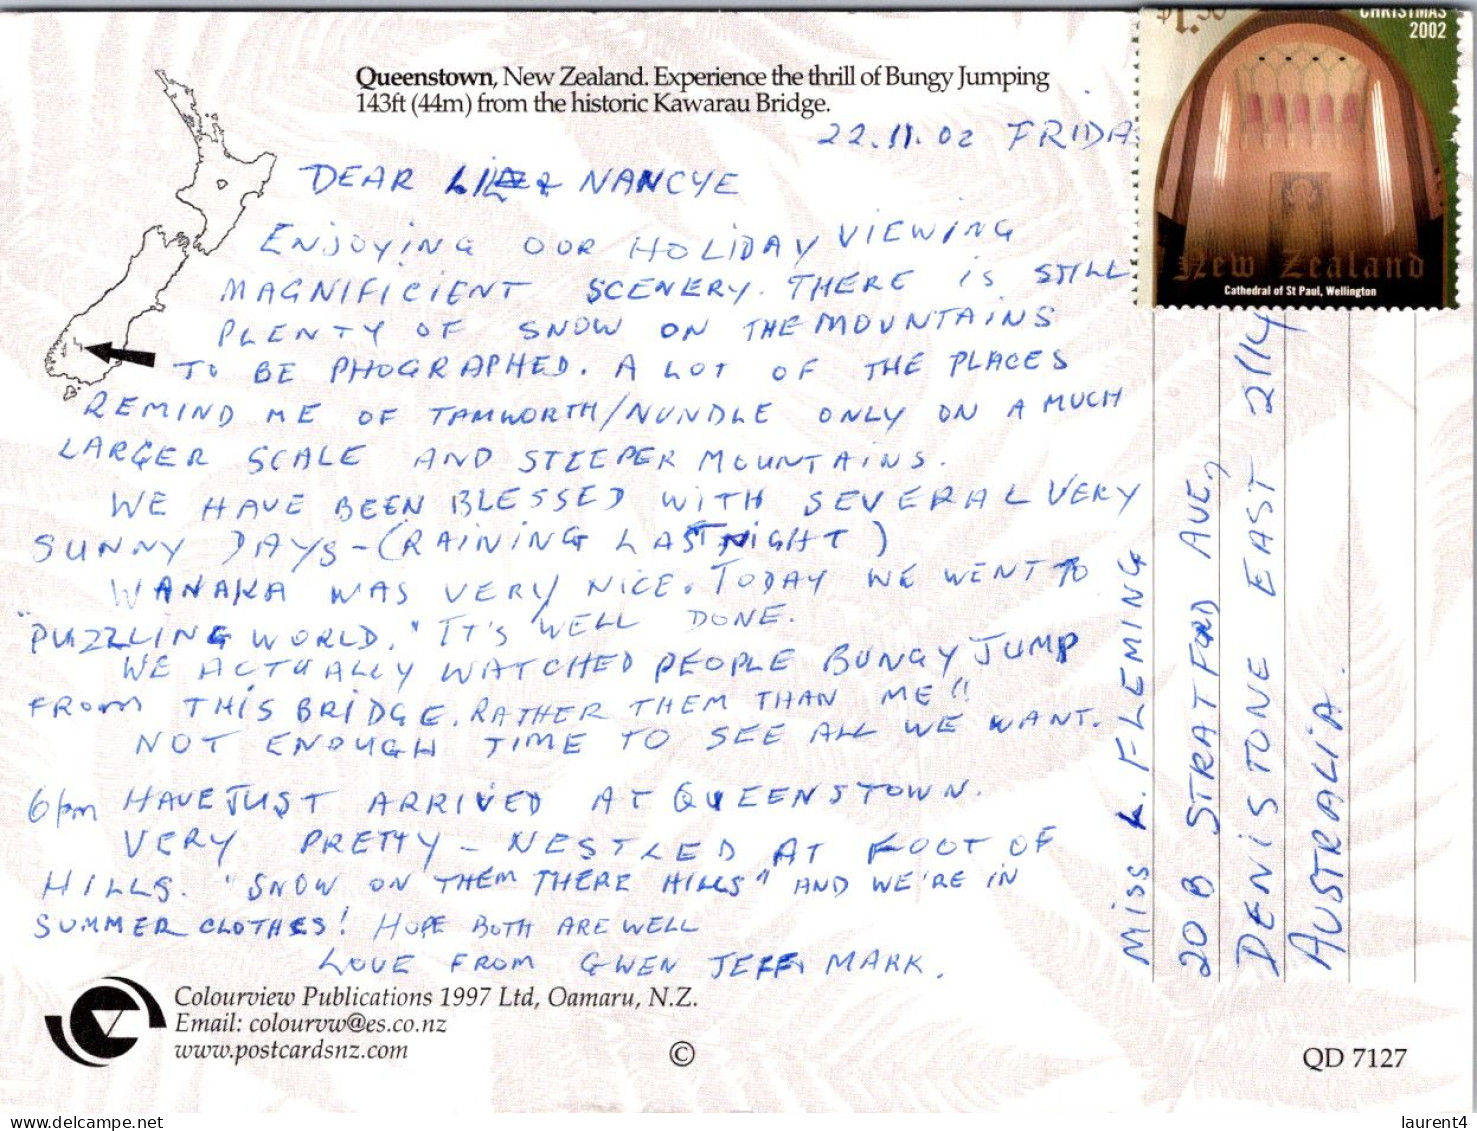 CHRISTMAS
2002
$1.50
New Zealand
Cathedral of St Paul, Wellington
Queenstown, New Zealand. Experience the thrill of Bungy Jumping
143ft (44m) from the historic Kawarau Bridge.
22.11.02 FRIDA
DEAR & NANCYE
ENJOYING OUR HOLIDAY VIEWING
MAGNIFICIENT SCENERY. THERE IS STILL
PLENTY OF SNOW ON THE MOUNTAINS
TO BE PHOGRAPHED. A LOT OF THE PLACES
REMIND ME OF TAMWORTH/NUNDLE ONLY ON A MUCH
LARGER SCALE AND STEEPER MOUNTAINS.
WE HAVE BEEN BLESSED WITH SEVERAL VERY
SUNNY DAYS - (RAINING LAST NIGHT)
WANAKA WAS VERY NICE. TODAY WE WENT TO
"PUZZLING WORLD." IT'S WELL DONE.
WE ACTUALLY WATCHED PEOPLE BUNGY JUMP
FROM THIS BRIDGE. RATHER THEM THAN ME!!
NOT ENOUGH TIME TO SEE ALL WE WANT.
6pm HAVE JUST ARRIVED AT QUEENSTOWN.
VERY PRETTY - NESTLED AT FOOT OF
HILLS. "SNOW ON THEM THERE HILLS" AND WE'RE IN
SUMMER CLOTHES! HOPE BOTH ARE WELL
LOVE FROM GWEN JEFF, MARK.
MISS L. FLEMING
20 B STRATFORD AVE,
DENISTONE EAST 2114
AUSTRALIA.
Colourview Publications 1997 Ltd, Oamaru, N.Z.
Email: colourvw@es.co.nz
www.postcardsnz.com
©
QD 7127
laurent4